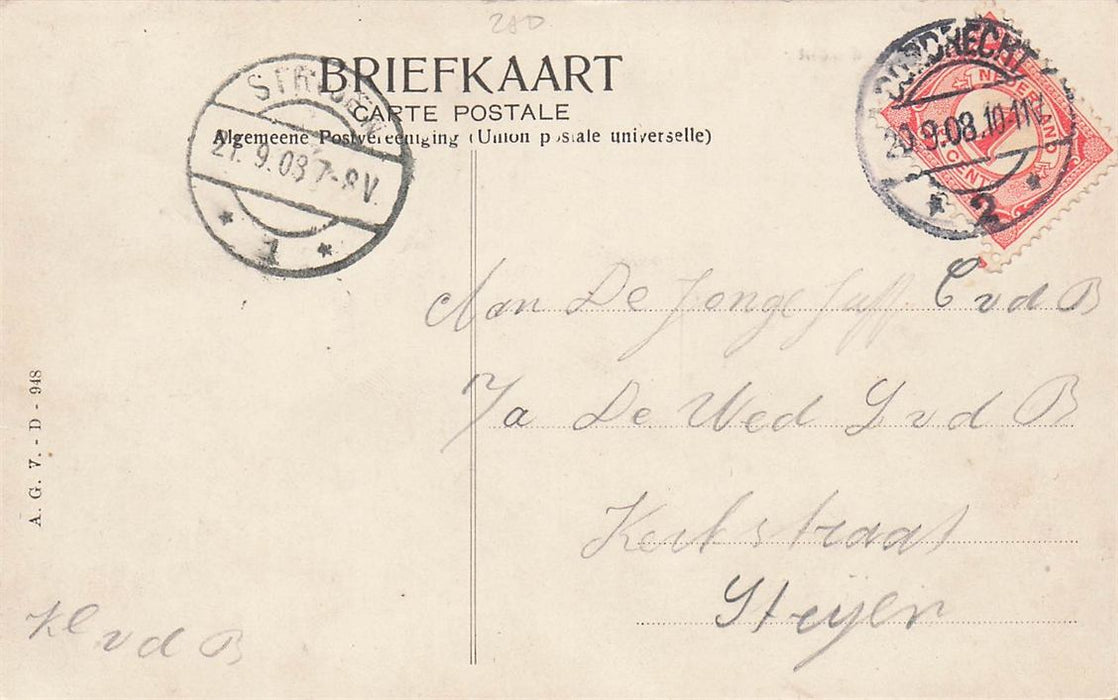 280
BRIEFKAART
CARTE POSTALE
Algemeene Postvereeniging (Union postale universelle)
STRIJEN
21.9.08 7-8V.
1
DORDRECHT
20.9.08.10-11V.
2
NEDERLAND
CENT
Aan De Jonge Juff. C vd B
De Wed L vd B
Kerkstraat
A. G. V. - D - 948
vd B